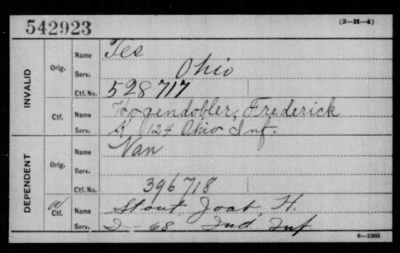 542923 (3-H-4)
INVALID
Orig. Name Tes
Serv. Ohio
Ctf. No. 528717
Ctf. Name Hogendobler, Frederick
Serv. K 124 Ohio Inf.
DEPENDENT
Orig. Name Van
Serv.
Ctf. No. 396718
Ctf. Name Stout, Joab, H.
Serv. I - 68 Ind Inf
6-1995